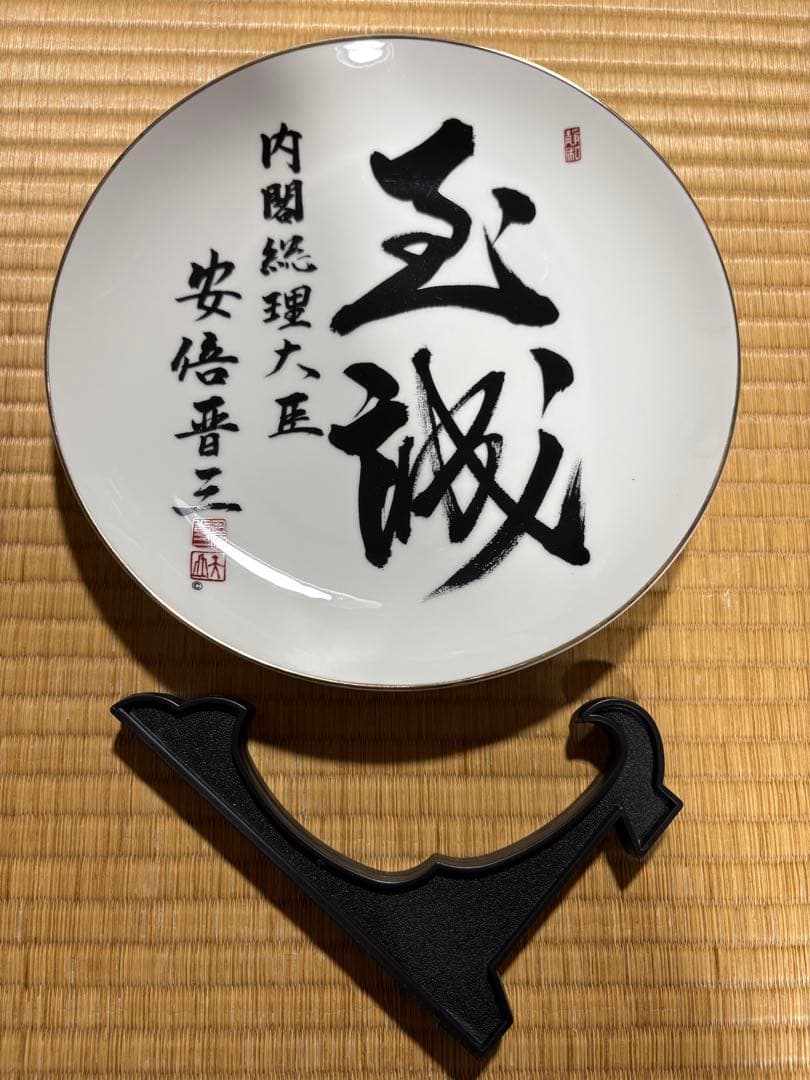 至誠
内閣総理大臣
安倍晋三
©